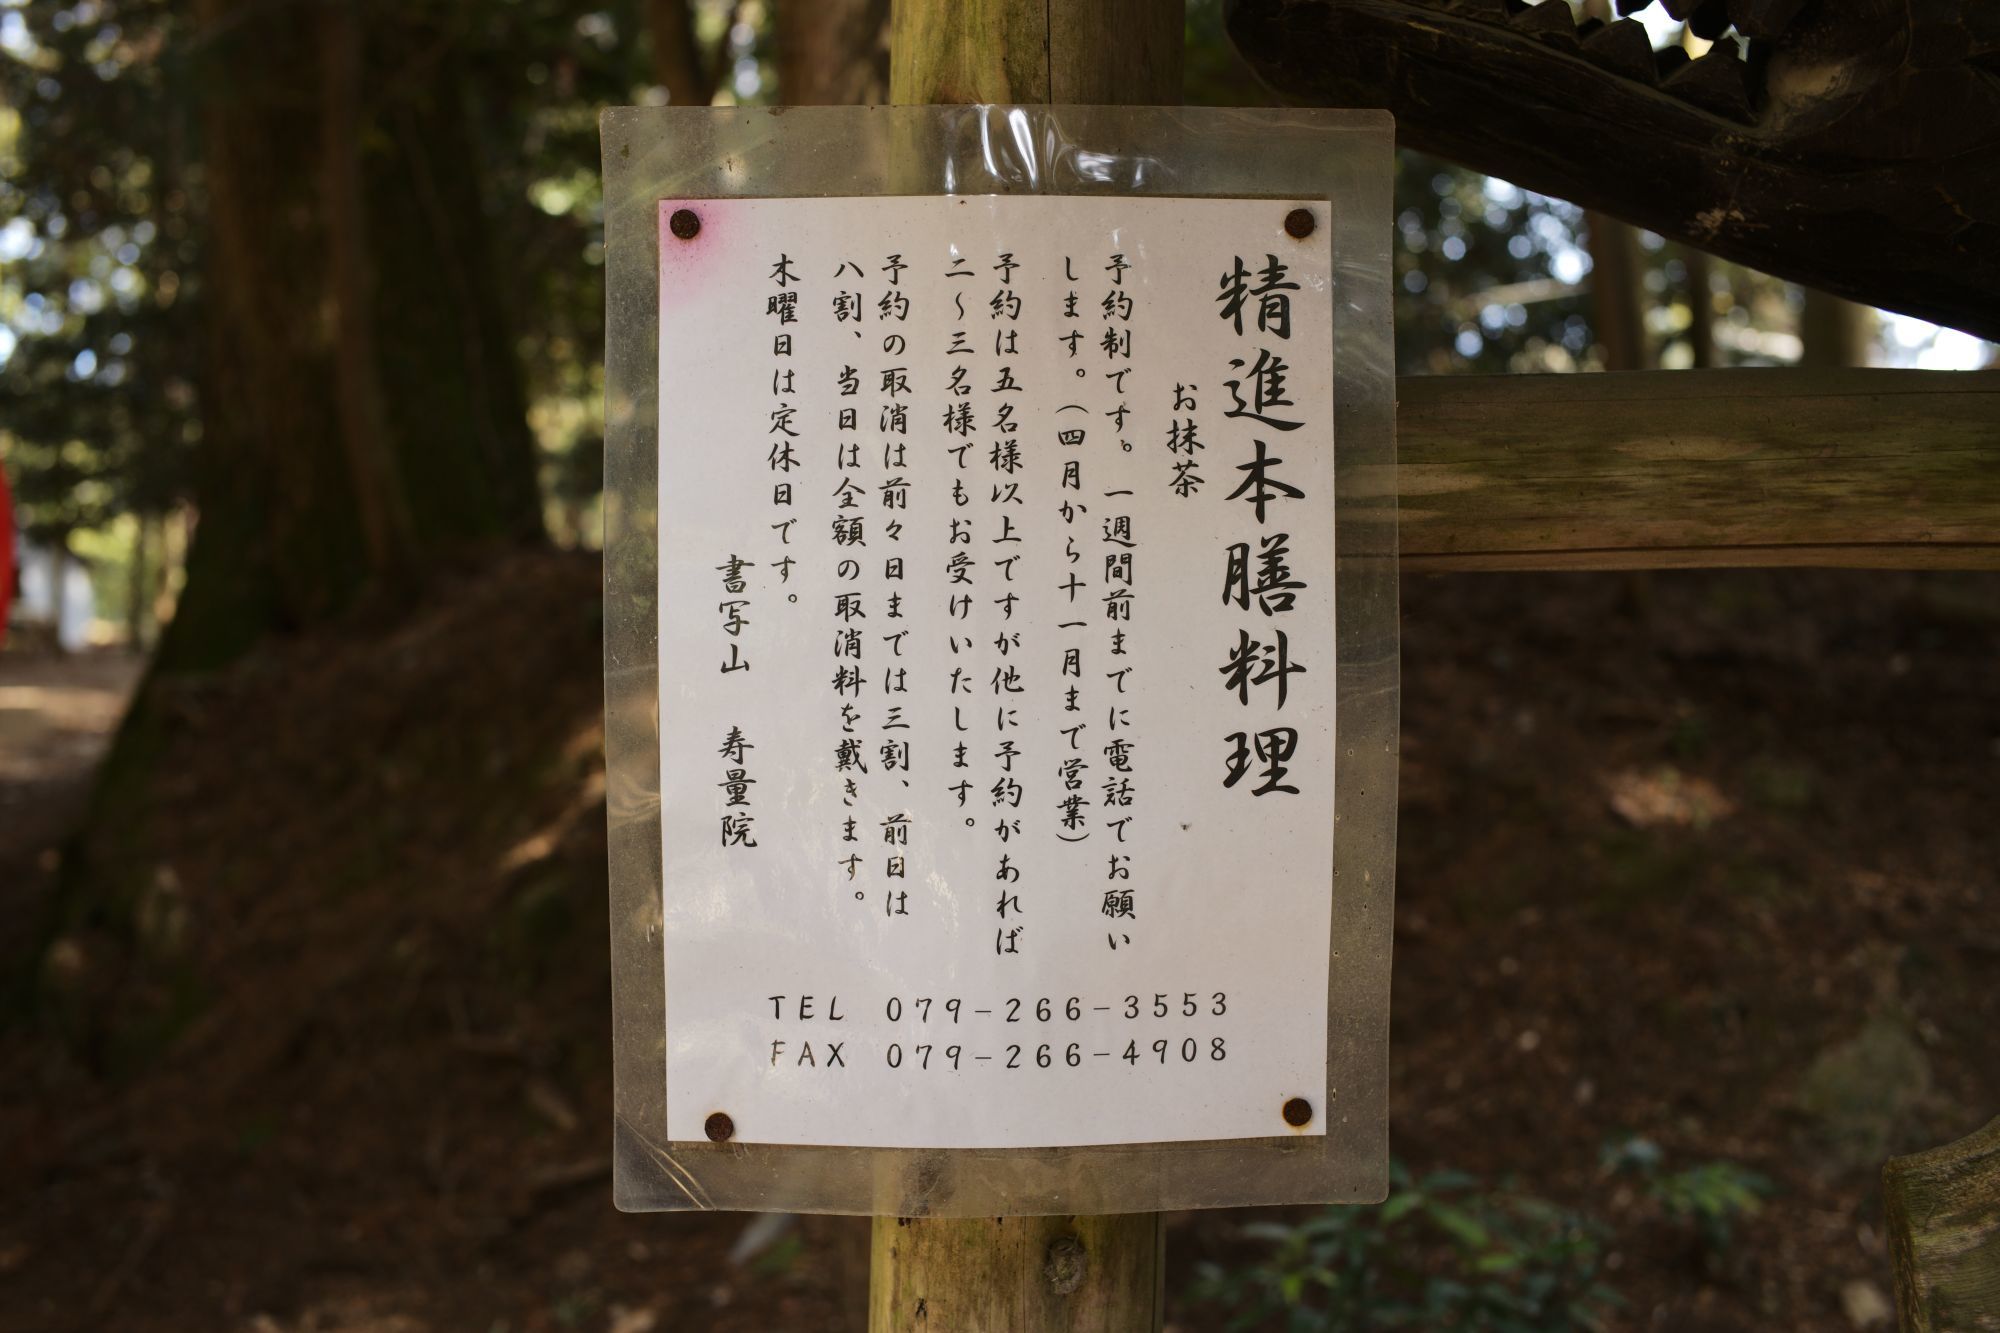 精進本膳料理
お抹茶
予約制です。一週間前までに電話でお願い
します。（四月から十一月まで営業）
予約は五名様以上ですが他に予約があれば
二～三名様でもお受けいたします。
予約の取消は前々日までは三割、前日は
八割、当日は全額の取消料を戴きます。
木曜日は定休日です。
書写山　寿量院
TEL 079-266-3553
FAX 079-266-4908